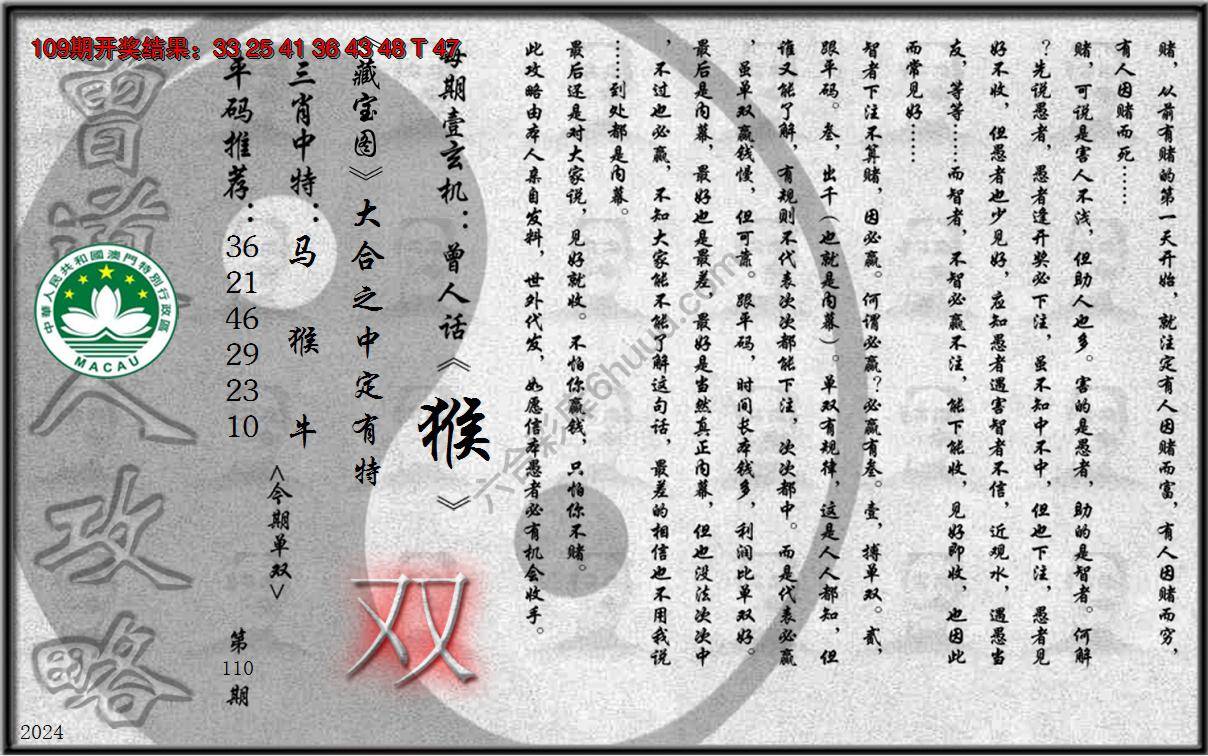 109期开奖结果：33 25 41 36 43 48 T 47
赌，从前有赌的第一天开始，就注定有人因赌而富，有人因赌而穷，
有人因赌而死……
赌，可说是害人不浅，但助人也多。害的是愚者，助的是智者。何解
？先说愚者，愚者逢开奖必下注，虽不知中不中，但也下注，愚者见
好不收，但愚者也少见好，应知愚者遇害智者不信，近观水，遇愚当
友，等等……而智者，不智必赢不注，能下能收，见好即收，也因此
而常见好……
智者下注不算赌，因必赢。何谓必赢？必赢有叁。壹，搏单双。贰，
跟平码。叁，出千（也就是内幕）。单双有规律，这是人人都知，但
谁又能了解，有规则不代表次次都能下注，次次都中。而是代表必赢
，虽单双赢钱慢，但可靠。跟平码，时间长本钱多，利润比单双好。
最后是内幕，最好也是最差，最好是当然真正内幕，但也没法次次中
，不过也必赢，不知大家能不能了解这句话，最差的相信也不用我说
……到处都是内幕。
最后还是对大家说，见好就收。不怕你赢钱，只怕你不赌。
此攻略由本人亲自发料，世外代发，如愿信本愚者必有机会收手。
每期壹玄机：曾人话《猴》
《藏宝图》大合之中定有特
双
三肖中特：马 猴 牛
<今期单双>
平码推荐：
36
21
46
29
23
10
第
110
期
曾道人攻略
中華人民共和國澳門特別行政區
MACAU
六合彩库6huuu.com
2024